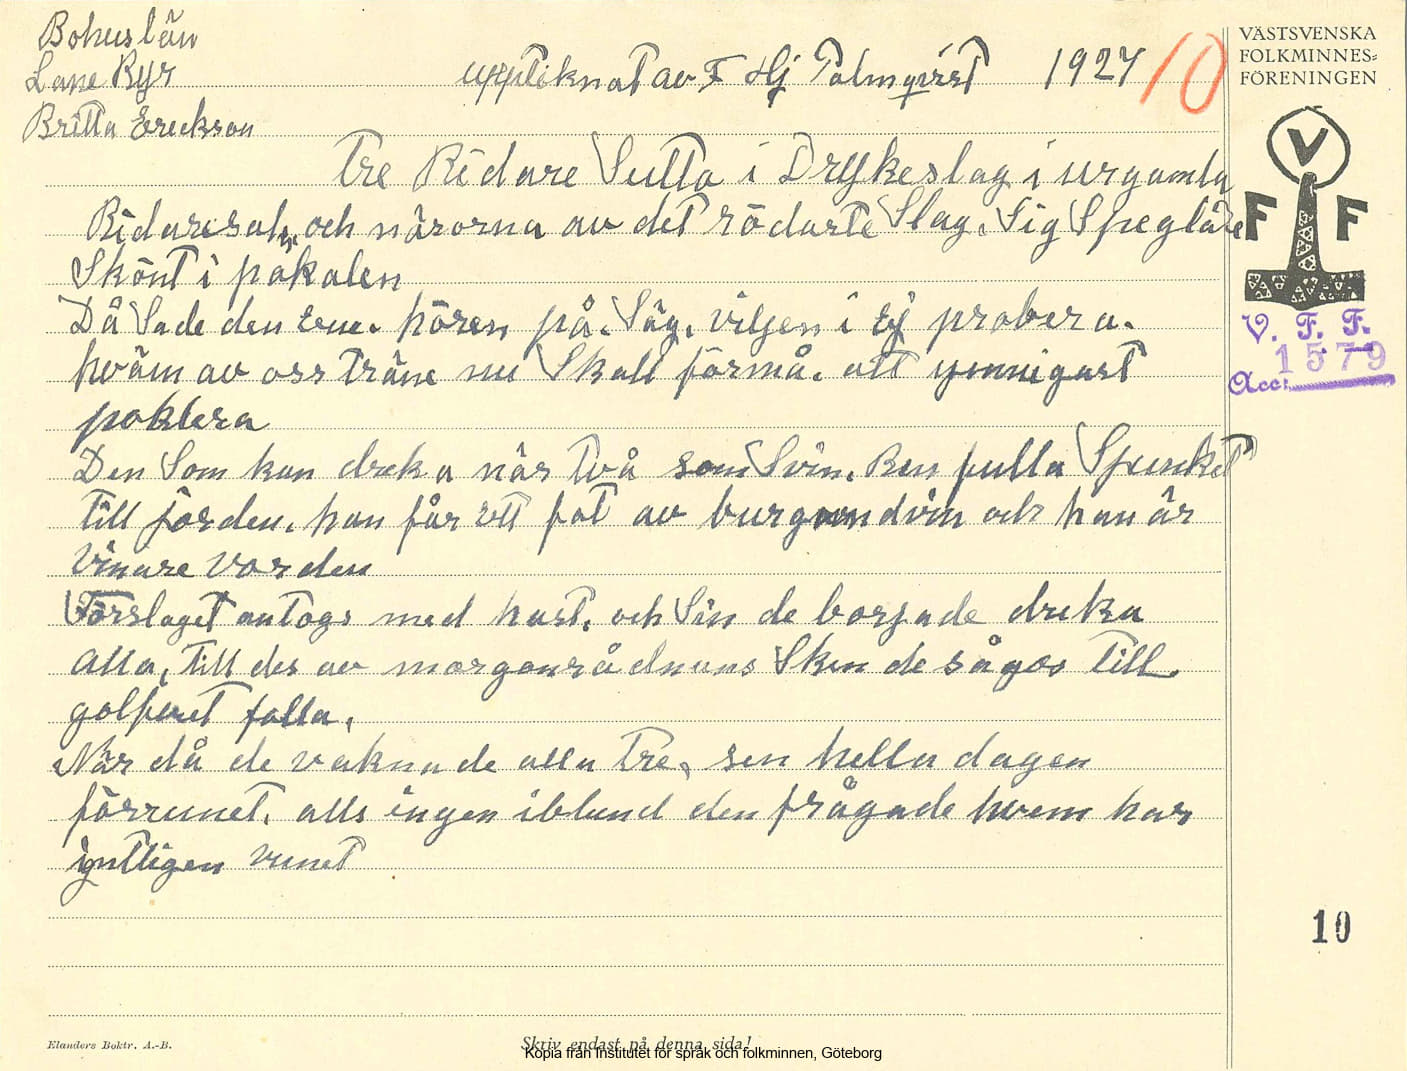 Bohuslän
Lane Ryr
Britta Erickson
upptiknat av F Hj Palmqvist 1927
10
VÄSTSVENSKA
FOLKMINNES-
FÖRENINGEN
V
F F
V. F. F.
Acc: 1579
Tre Ridare Sutto i Drykeslag i urgamla
Ridaresahn, och närorna av det rödaste Slag. Sig Speglade
Skönt i pokalen
Då Sade den Ene. hören på. Säg, viljen i Ej probera.
hväm av oss träne nu Skall förmå. att ynnigast
poklera
Den Som kan dreka när två som Svin. Ren fulla Spunket
till jorden, han får ett fat av burgundvin och han är
Vinare Vorden
Förslaget antogs med hast. och Sin de borjade dreka
alla, Till des av morgonrådnans Sken de sågos till
golfvet falla,
När då de vaknade alla tre, sen hella dagen
förrunet. alls ingen iblund den frågade hvem har
yntligen vunet
10
Elanders Boktr. A.-B.
Skriv endast på denna sida!
Kopia från Institutet för språk och folkminnen, Göteborg